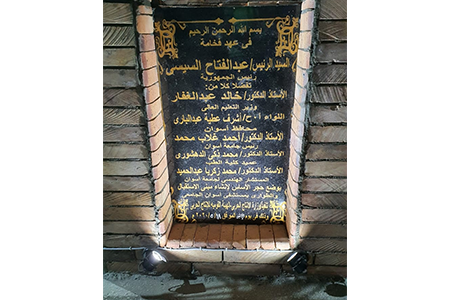 بسم الله الرحمن الرحيم
في عهد فخامة
السيد الرئيس/عبدالفتاح السيسى
رئيس الجمهورية
تفضلا كلا من:
الأستاذ الدكتور/خالد عبدالغفار
وزير التعليم العالى
اللواء أ.ح/أشرف عطية عبدالبارى
محافظ أسوان
الأستاذ الدكتور/أحمد غلاب محمد
رئيس جامعة أسوان
الأستاذ الدكتور/محمد زكى الدهشورى
عميد كلية الطب
الأستاذ الدكتور/محمد زكريا عبدالحميد
المستشار الهندسى لجامعة أسوان
بوضع حجر الأساس لإنشاء مبنى الاستقبال
والطوارئ بمستشفى أسوان الجامعى